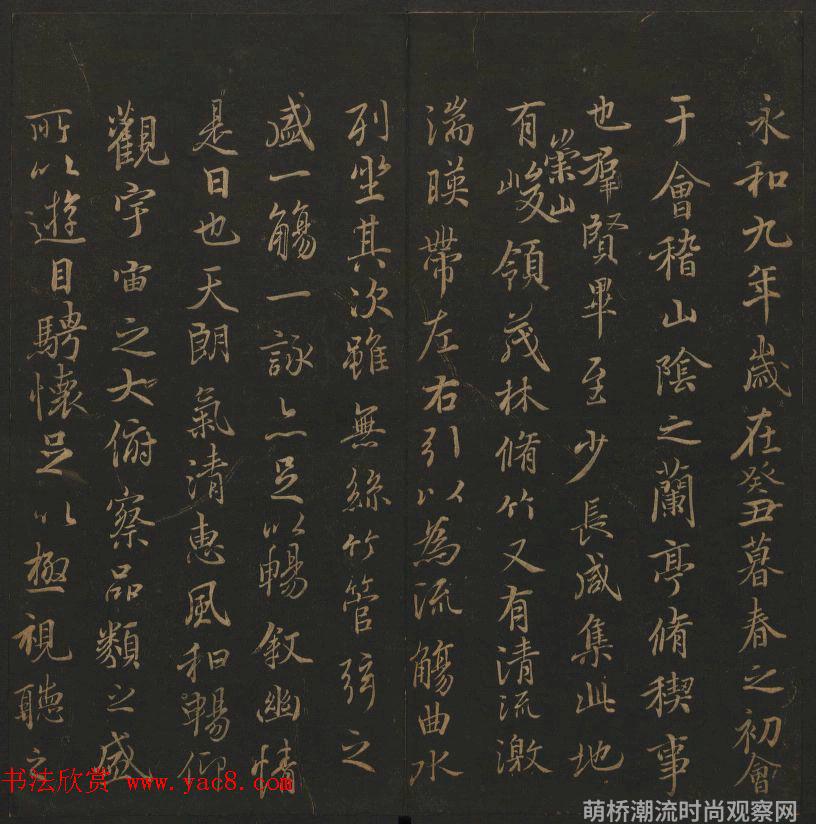 永和九年歲在癸丑暮春之初會
于會稽山陰之蘭亭脩稧事
也羣賢畢至少長咸集此地
有崇山峻領茂林脩竹又有清流激
湍暎帶左右引以為流觴曲水
列坐其次雖無絲竹管弦之
盛一觴一詠亦足以暢敘幽情
是日也天朗氣清惠風和暢仰
觀宇宙之大俯察品類之盛
所以遊目騁懷足以極視聽之
书法欣赏 www.yac8.com
萌桥潮流时尚观察网